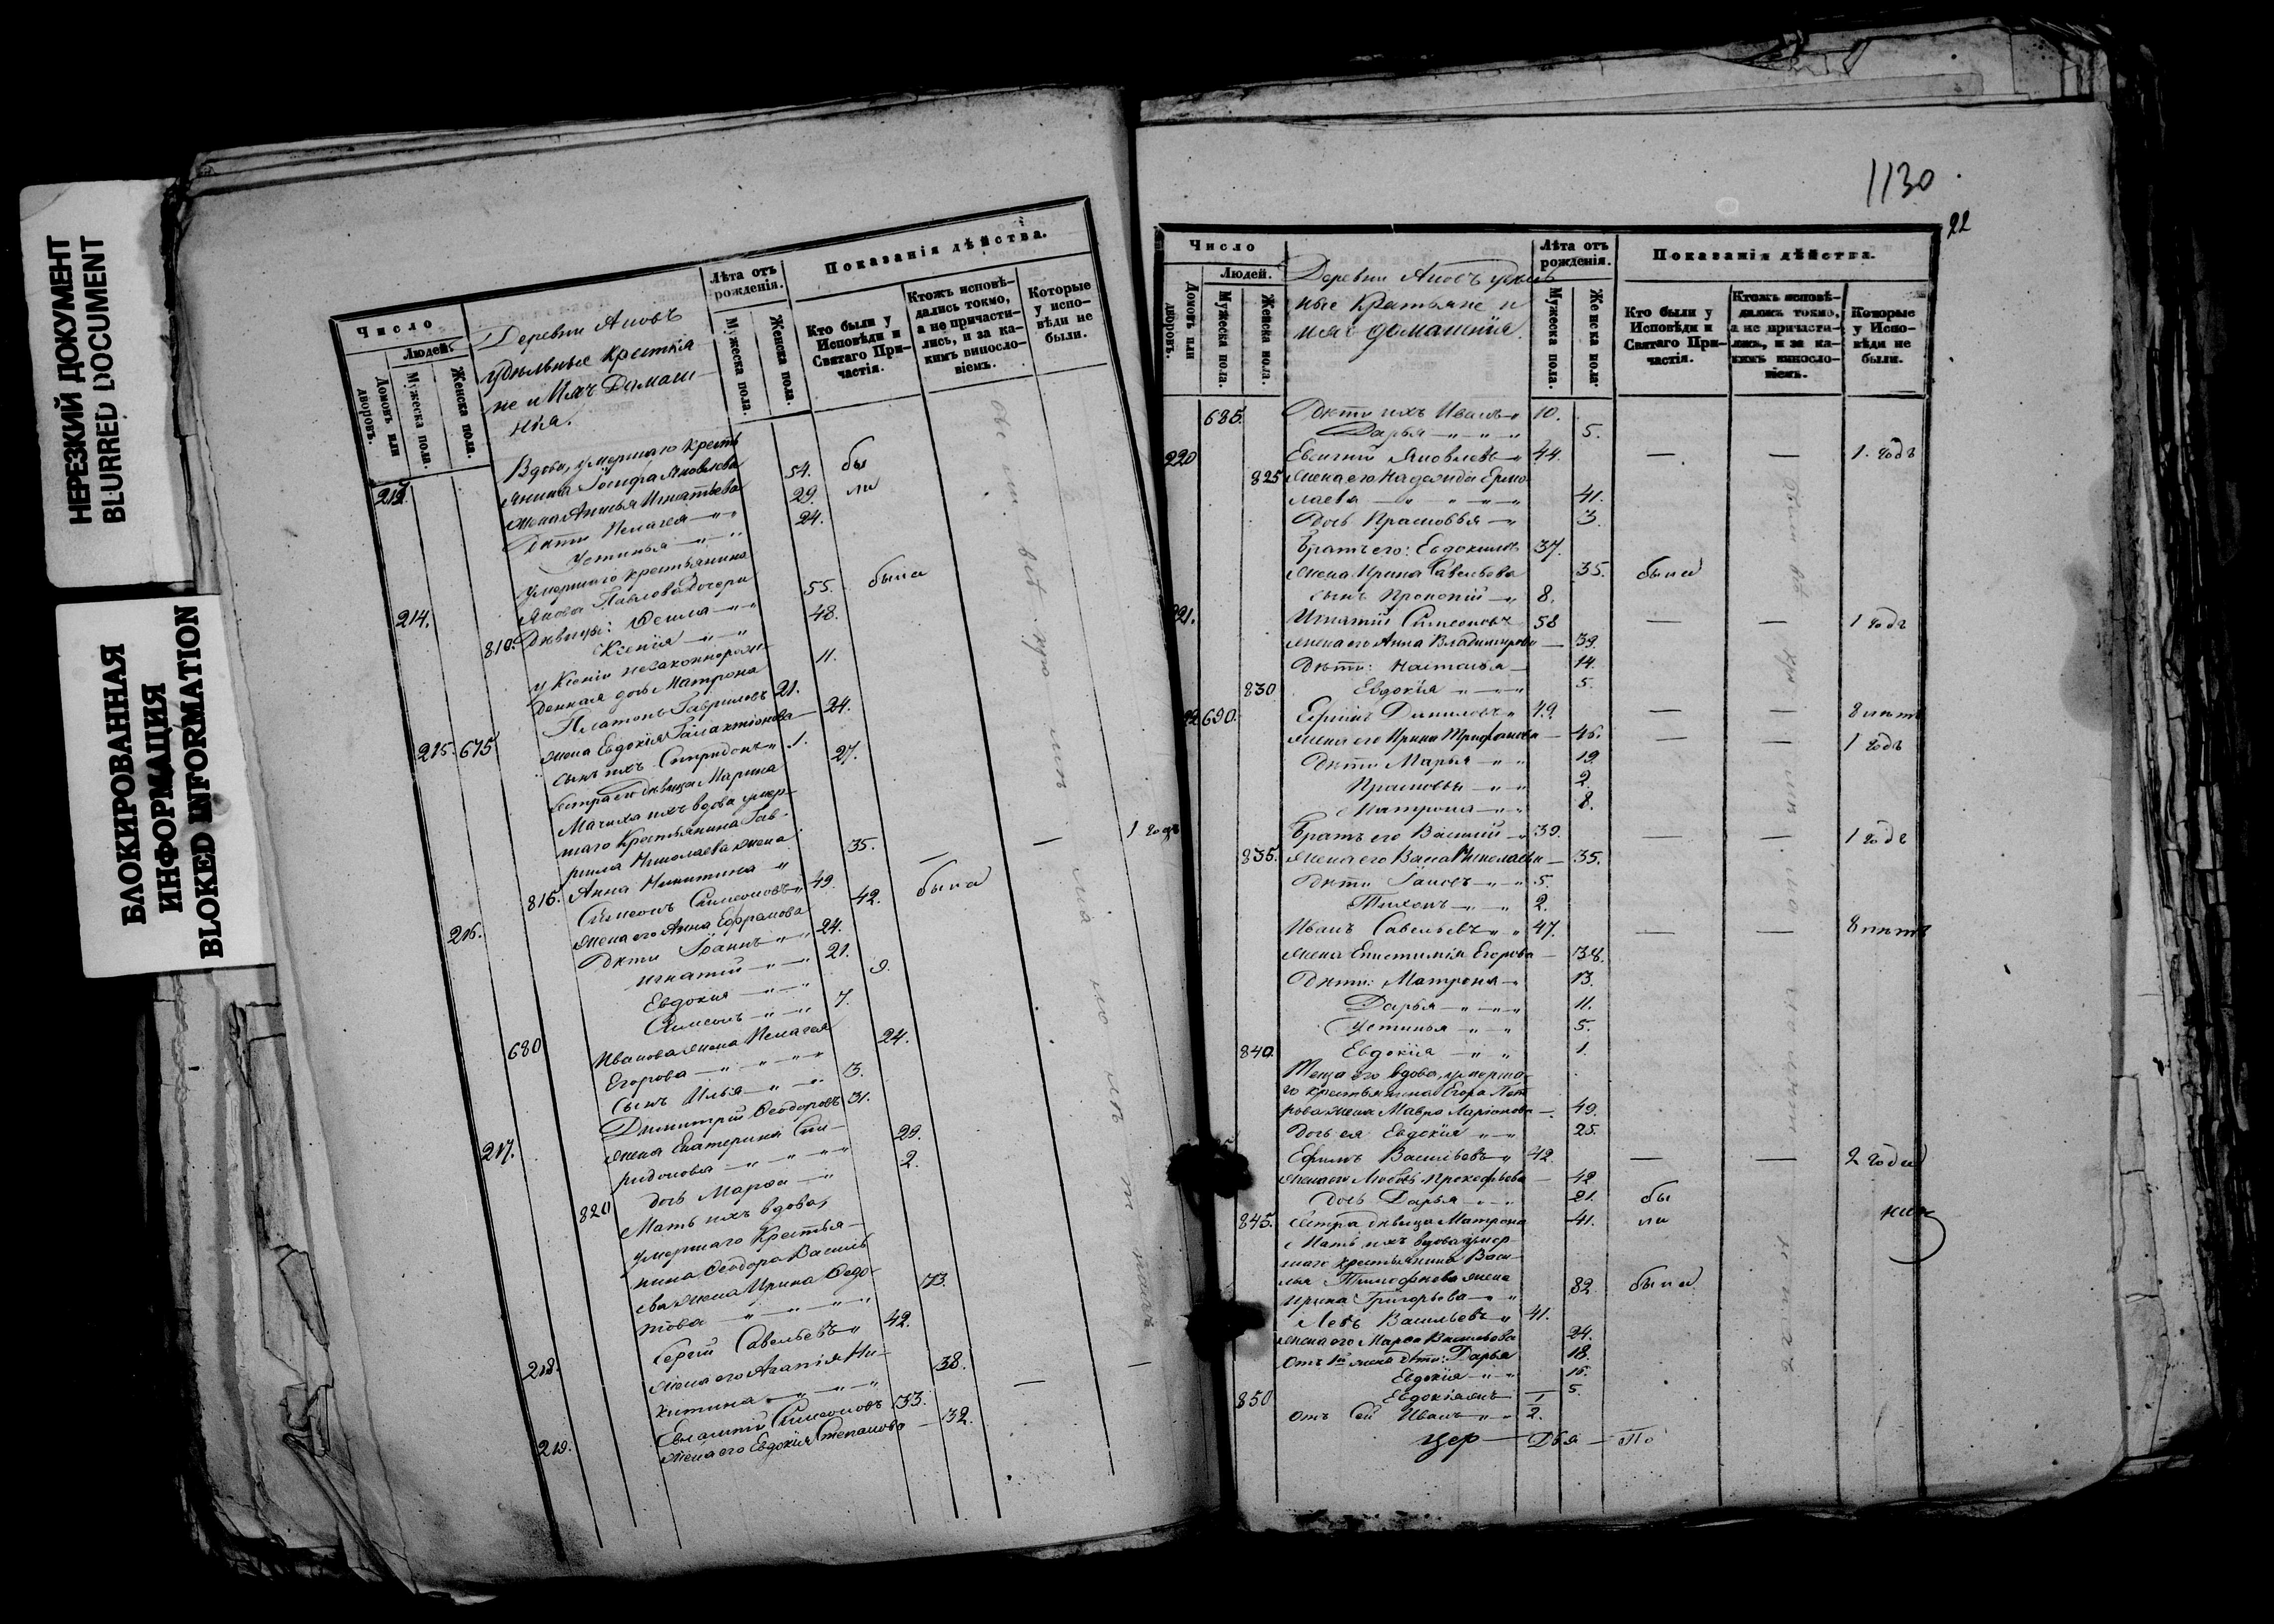 НЕРЕЗКИЙ ДОКУМЕНТ
BLURRED DOCUMENT
БЛОКИРОВАННАЯ
ИНФОРМАЦИЯ
BLOKED INFORMATION
Число
Людей.
Домовъ или дворовъ.
Мужеска пола.
Женска пола.
Деревни
удѣльные крестья
не и ихъ домаш-
нiя.
Лѣта отъ рожденiя.
Мужеска пола.
Женска пола.
Показанiя дѣйства.
Кто были у Исповѣди и Святаго При-частiя.
Ктожъ исповѣ-дались токмо, а не причасти-лись, и за ка-кимъ винословiемъ.
Которые у испо-вѣди не были.
Вдова, умершаго кресть
янина Iосифа Яковлева
жена Анисья Игнатьева 54. бы
Дѣти Пелагея 29. ли
Устинья 24.
умершаго крестьянина
214. Якова Павлова дочери
810. Дѣвицы: 55. была
Ксенiя 48.
у Ксенiи незаконнорож-
денная дочь Матрона 11.
215. 675 Платонъ Гавриловъ 21.
жена Евдокiя Галактiонова 24.
сынъ ихъ Спиридонъ 1.
сестра его дѣвица Марина 27.
Мачиха ихъ вдова умер-
шаго крестьянина Гав-
рила Николаева жена
815. Анна Никитина 35. — — 1 годъ
216. Симеонъ Симеоновъ 49. была
жена его Анна 42.
Дѣти Iоаннъ 24.
Игнатiй 21.
Евдокiя 9.
680 Симеонъ 7.
Иванова жена Пелагея
Егорова 24.
сынъ Илья 3.
217. Димитрiй Ѳеодоровъ 31.
жена Екатерина Спи-
ридонова 29.
820 дочь Марѳа 2.
Мать ихъ вдова,
умершаго крестья-
нина Ѳеодора Василь
ева жена Ирина Ѳедо-
това 73.
218. Сергiй Савельевъ 42.
жена его Агапiя Ни-
китина 38.
219. Симеоновъ 33. —
жена его Евдокiя Степанова 32.
1130
22
Число
Людей.
Домовъ или дворовъ.
Мужеска пола.
Женска пола.
Деревни удѣль
ные крестьяне и
ихъ домашнiя.
Лѣта отъ рожденiя.
Мужеска пола.
Женска пола.
Показанiя дѣйства.
Кто были у Исповѣди и Святаго При-частiя.
Ктожъ исповѣ-дались токмо, а не причасти-лись, и за ка-кимъ винословiемъ.
Которые у Испо-вѣди не были.
685. Дѣти ихъ Иванъ 10.
Дарья 5.
220 Яковлевъ 44. — — 1. годъ
825 жена его Надежда Ермо
лаева 41.
дочь Прасковья 3.
Братъ его: Евдокимъ 37.
жена Ирина Савельева 35. была
сынъ Прокопiй 8.
221. Игнатiй Симеоновъ 58 — — 1 годъ
жена его Анна Владимирова — 39.
Дѣти: Наталья 14.
830 Евдокiя 5.
690. Ефимъ Даниловъ 49. — — 8 лѣтъ
жена его Ирина Трифонова — 46. — — 1 годъ
Дѣти Марья 19.
Прасковья 2.
Матрона 8.
Братъ его Василiй 39. — — 1 годъ
835. жена его Николаева — 35.
Дѣти 5.
Тихонъ 2.
Иванъ Савельевъ 47. — — 8 лѣтъ
жена Епистимiя Егорова — 38.
Дѣти: Матрона 13.
Дарья 11.
Устинья 5.
840. Евдокiя 1.
Теща его вдова, умерша-
го крестьянина Егора Пет
рова жена Мавра Ларiонова — 49.
дочь ея Евдокiя 25.
Ефимъ Васильевъ 42. — — 2 года
жена его Любовь Прокофьева — 42
дочь Дарья 21. бы
845. сестра дѣвица Матрона 41. ли
Мать ихъ вдова умер-
шаго крестьянина Васи-
лья Тимофеева жена
Ирина Григорьева 82. была
Левъ Васильевъ 41.
жена его Марѳа Васильева 24.
отъ 1й жены дѣти: Дарья 18.
Евдокiя 15.
850 5.
отъ сей Иванъ 2.
цер — Дья — По